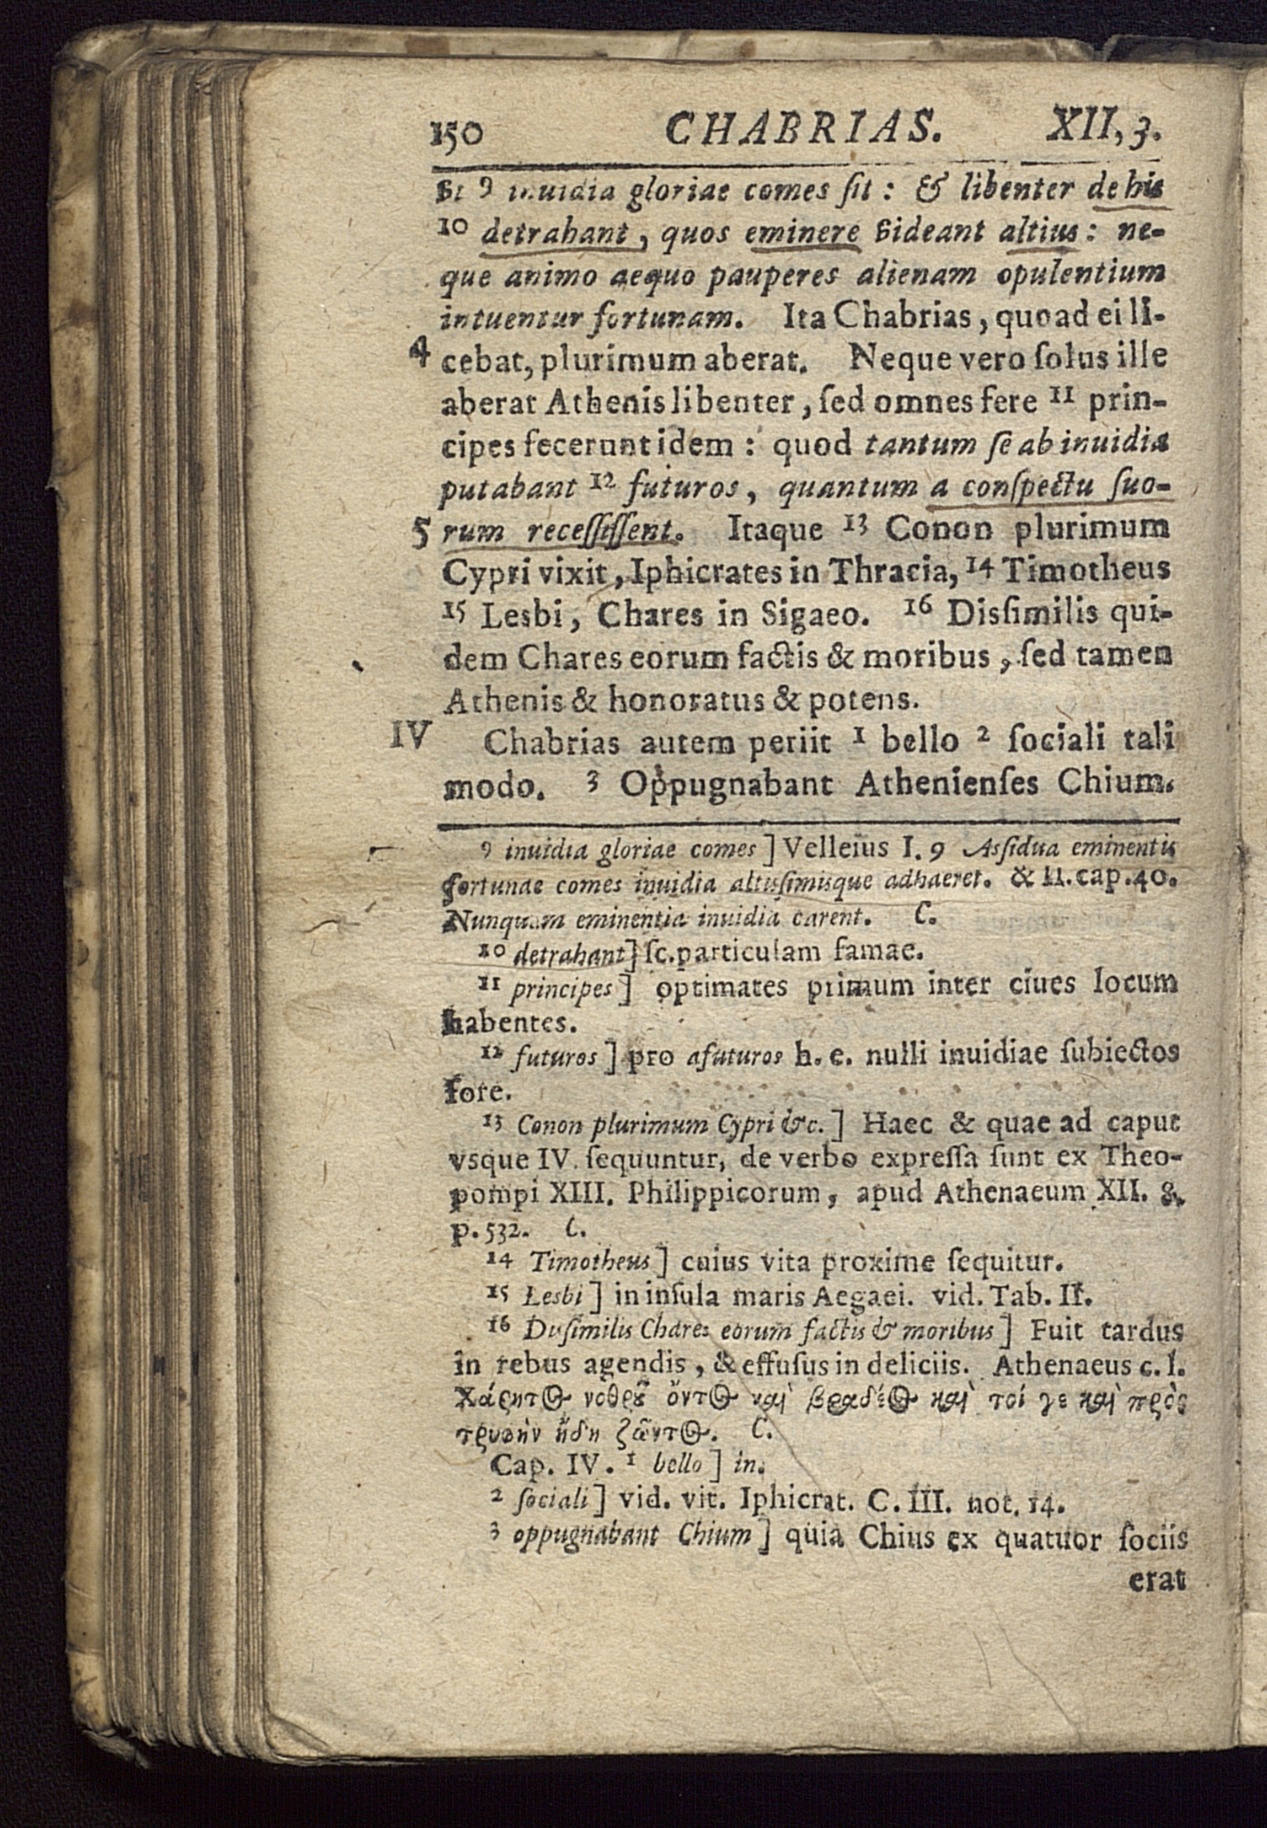 150 CHABRIAS. XII, 3.
vt 9 inuidia gloriae comes ſit: & libenter de his
10 detrahant, quos eminere videant altius: ne-
que animo aequo pauperes alienam opulentium
intuentur fortunam. Ita Chabrias, quoad ei li-
4 cebat, plurimum aberat. Neque vero ſolus ille
aberat Athenis libenter, ſed omnes fere 11 prin-
cipes fecerunt idem: quod tantum ſe ab inuidia
putabant 12 futuros, quantum a conſpectu ſuo-
5 rum receſſiſſent. Itaque 13 Conon plurimum
Cypri vixit, Iphicrates in Thracia, 14 Timotheus
15 Lesbi, Chares in Sigaeo. 16 Diſſimilis qui-
dem Chares eorum factis & moribus, ſed tamen
Athenis & honoratus & potens.
IV Chabrias autem periit 1 bello 2 ſociali tali
modo. 3 Oppugnabant Athenienſes Chium.
9 inuidia gloriae comes] Velleius I. 9 Aſſidua eminentis
fortunae comes inuidia altiſſimisque adhaeret. & II. cap. 40.
Nunquam eminentia inuidia carent. C.
10 detrahant] ſc. particulam famae.
11 principes] optimates primum inter ciues locum
habentes.
12 futuros] pro afuturos h. e. nulli inuidiae ſubiectos
fore.
13 Conon plurimum Cypri &c.] Haec & quae ad caput
vsque IV. ſequuntur, de verbo expreſſa ſunt ex Theo-
pompi XIII. Philippicorum, apud Athenaeum XII. 8.
p. 532. C.
14 Timotheus] cuius vita proxime ſequitur.
15 Lesbi] in inſula maris Aegaei. vid. Tab. II.
16 Diſſimilis Chares eorum factis & moribus] Fuit tardus
in rebus agendis, & effuſus in deliciis. Athenaeus c. l.
Χάρητος νοθροῦ ὄντος καὶ βραδέος καὶ τοί γε καὶ πρὸς
τρυφὴν ἤδη ζῶντος. C.
Cap. IV. 1 bello] in.
2 ſociali] vid. vit. Iphicrat. C. III. not. 14.
3 oppugnabant Chium] quia Chius ex quatuor ſociis
erat